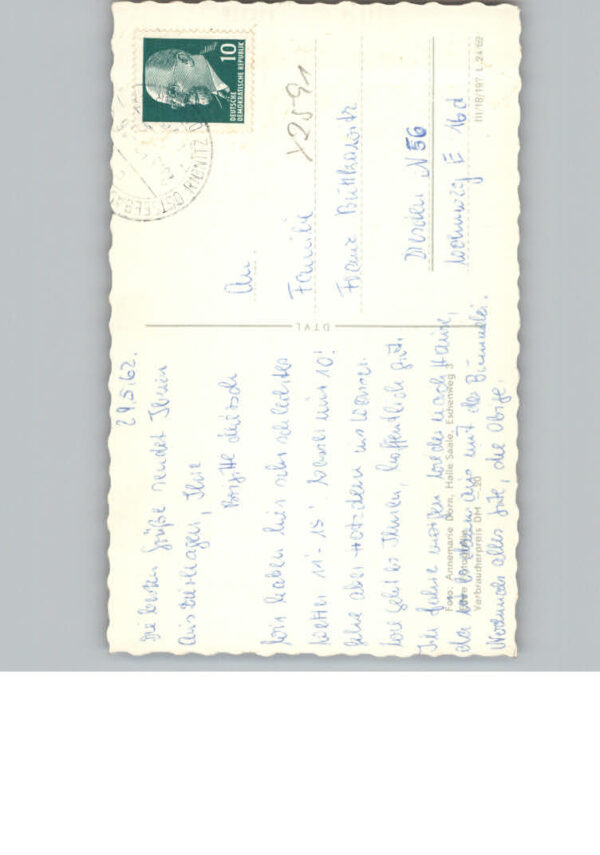 29.5.62.
Die besten Grüße sendet Ihnen
aus Dierhagen, Ihre
Brigitte
Wir haben hier sehr schlechtes
Wetter 11°-15° Wasser nur 10°!
Gehe aber trotzdem ins Wasser.
Wie geht es Ihnen, hoffentlich gut.
Ich fahre morgen wieder nach Hause,
da es dann aus mit der Bummelei.
Nochmals alles Gute, die Obige.
An
Familie
Franz
Dresden N 56
E 16d
Y2591
10
DEUTSCHE
DEMOKRATISCHE REPUBLIK
RIBNITZ
OSTSEEBAD
DTVL
III/18/197 L 24/62
Foto: Annemarie Dorn, Halle Saale, Eschenweg 3
Verbraucherpreis DM -.20